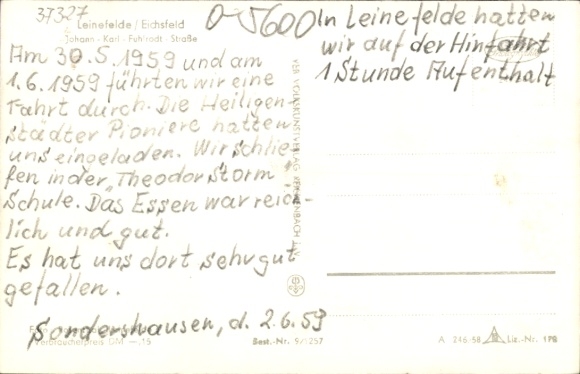 37327
O-5600
Leinefelde / Eichsfeld
Johann-Karl-Fuhlrodt-Straße
Am 30.5.1959 und am
1.6.1959 führten wir eine
Fahrt durch. Die Heiligen-
städter Pioniere hatten
uns eingeladen. Wir schlie-
fen in der „Theodor Storm"
Schule. Das Essen war reich-
lich und gut.
Es hat uns dort sehr gut
gefallen.
Sondershausen, d. 2.6.59
Verbraucherpreis DM —,15
Best.-Nr. 9/1257
VEB VOLKSKUNSTVERLAG REICHENBACH i. V.
In Leinefelde hatten
wir auf der Hinfahrt
1 Stunde Aufenthalt
A 246-58 Liz.-Nr. 178